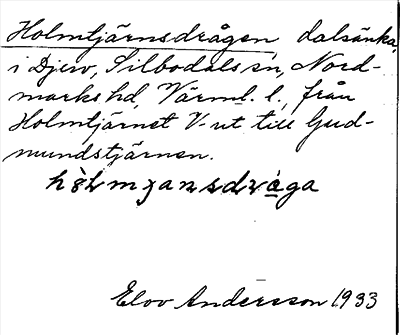 Holmtjärnsdrågen dalsänka,
i Djerv, Silbodals sn, Nord-
marks hd, Värml. l., från
Holmtjärnet V-ut till Gud-
mundstjärnen.
Elov Andersson 1933